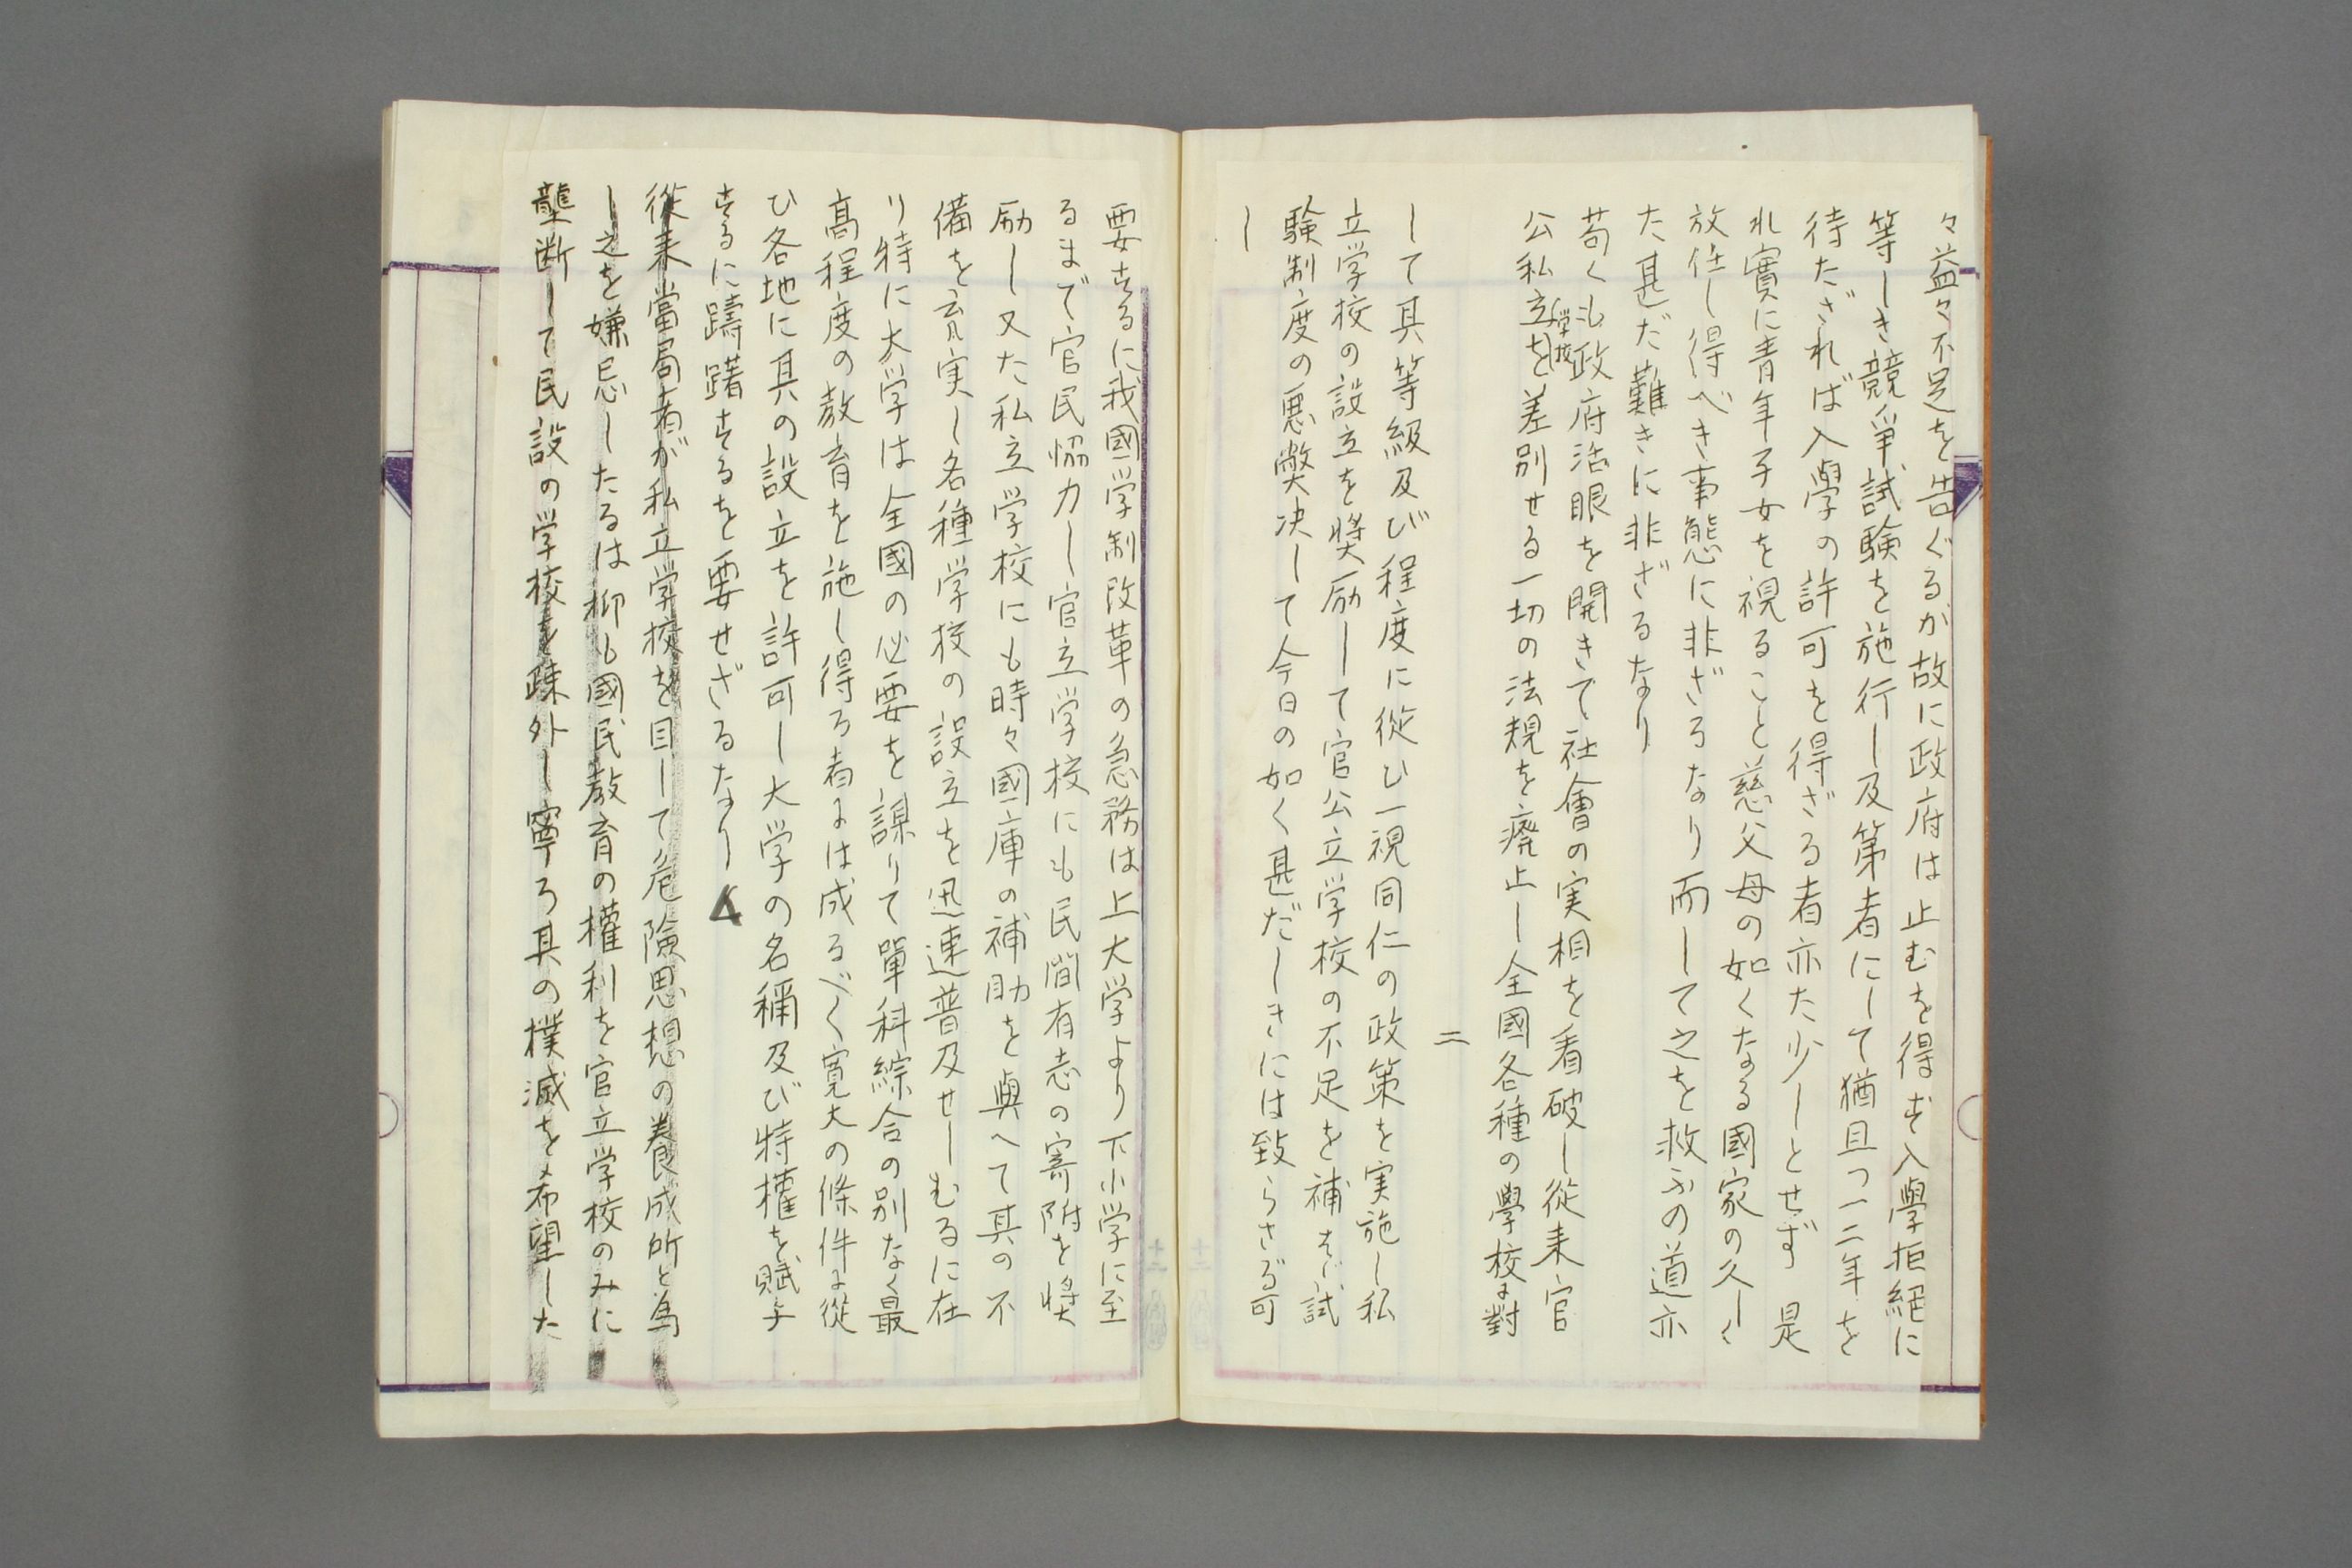 々益々不足を告ぐるが故に政府は止むを得ず入學拒絕に
等しき競爭試験を施行し及第者にして猶且つ一二年を
待たざれば入學の許可を得ざる者亦た少しとせず是
れ實に青年子女を視ること慈父母の如くなる國家の久しく
放任し得べき事態に非ざるなり而して之を救ふの道亦
た甚だ難きに非ざるなり
苟くも政府活眼を開きて社會の実相を看破し従来官
公私立学校を差別せる一切の法規を廃止し全國各種の學校に對
二
して其等級及び程度に従ひ一視同仁の政策を実施し私
立学校の設立を奨励して官公立学校の不足を補はゞ試
験制度の悪弊決して今日の如く甚だしきには致らざる可
し
要するに我國学制改革の急務は上大学より下小学に至
るまで官民協力し官立学校にも民間有志の寄附を奨
励し又た私立学校にも時々國庫の補助を與へて其の不
備を充実し各種学校の設立を迅速普及せしむるに在
り特に大学は全國の必要を謀りて單科綜合の別なく最
高程度の教育を施し得る者には成るべく寛大の條件に從
ひ各地に其の設立を許可し大学の名稱及び特權を賦与
するに躊躇するを要せざるなり
從来當局者が私立学校を目して危険思想の養成所と為
し之を嫌忌したるは抑も國民教育の權利を官立学校のみに
壟断して民設の学校を疎外し寧ろ其の撲滅を希望した